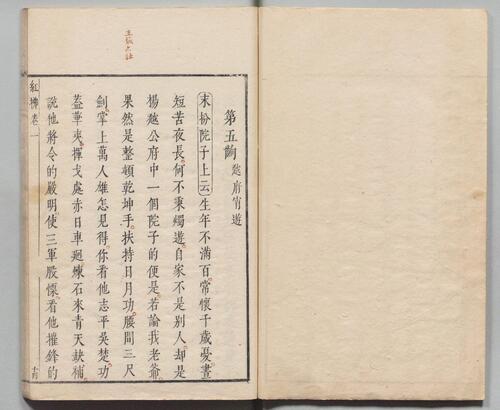 第五齣 越府宵遊
末扮院子上云生年不滿百常懷千歲憂晝
短苦夜長何不秉燭遊自家不是別人却是
楊越公府中一個院子的便是若論我老爺
果然是整頓乾坤手扶持日月功腰間三尺
劍掌上萬人雄怎見得你看他志平吳楚功
蓋華夷揮戈處赤日車廻煉石來青天缺補
說他將令的嚴明使三軍股慄看他摧鋒的
紅拂卷一